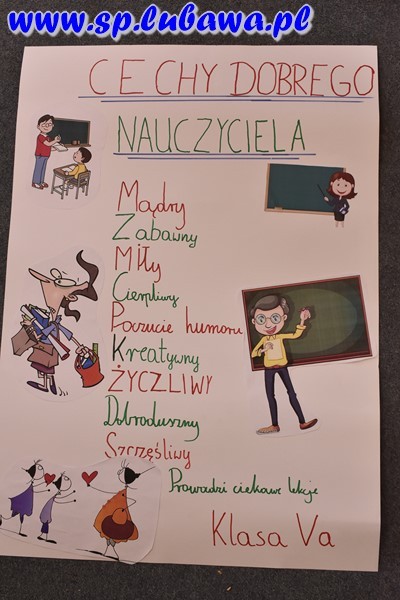 www.sp.lubawa.pl
CECHY DOBREGO
NAUCZYCIELA
Mądry
Zabawny
Miły
Cierpliwy
Poczucie humoru
Kreatywny
ŻYCZLIWY
Dobroduszny
Szczęśliwy
Prowadzi ciekawe lekcje
Klasa Va